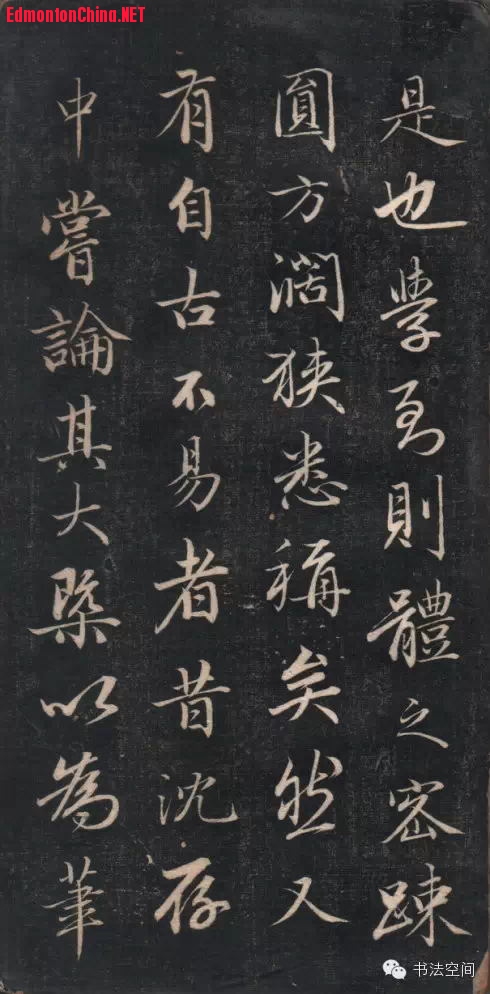 EdmontonChina.NET
是也學至則體之密踈
圓方濶狭悉稱矣然又
有自古不易者昔沈存
中嘗論其大槩以為筆
书法空间